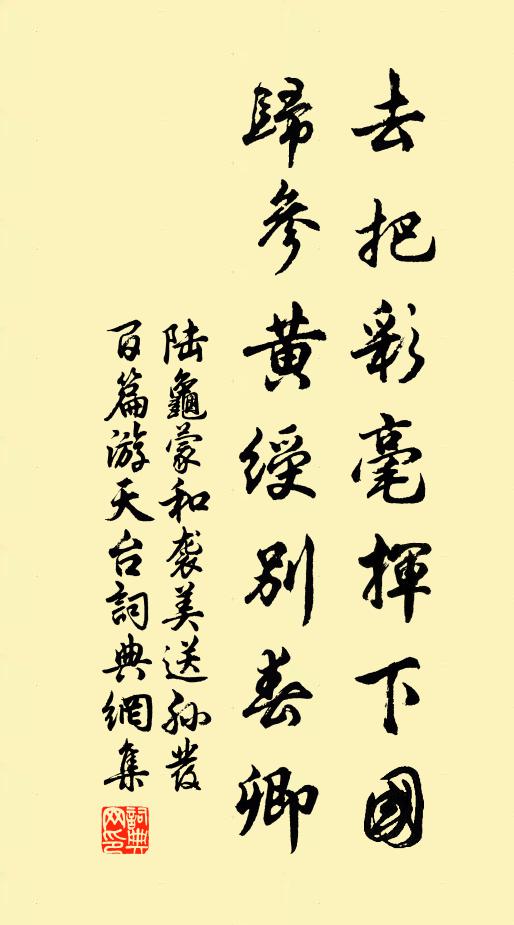 去把彩毫揮下國
歸參黃綬別春卿
陸龜蒙和袭美送孙發
百篇游天台詞典網集
詞典
网印